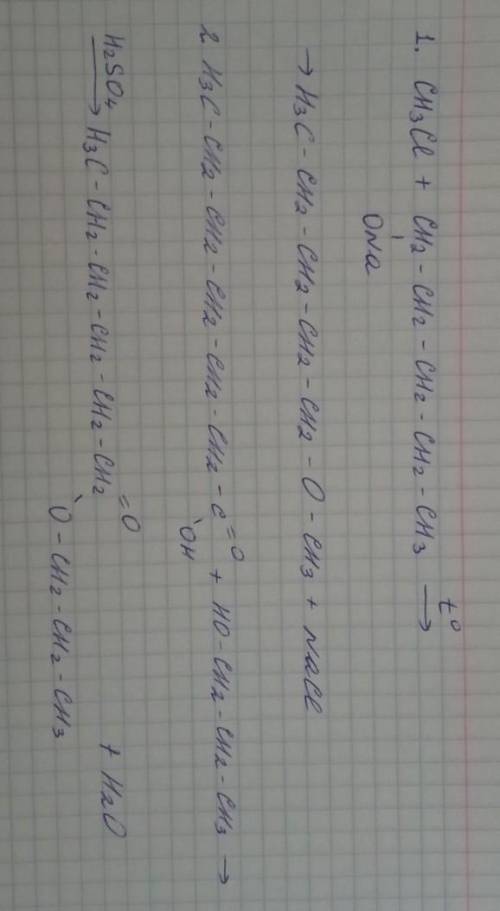 1. CH3Cl + CH2 - CH2 - CH2 - CH2 - CH3 t° →
ONa
→ H3C - CH2 - CH2 - CH2 - CH2 - O - CH3 + NaCl
2 H3C - CH2 - CH2 - CH2 - CH2 - CH2 - C = O + HO - CH2 - CH2 - CH3 →
OH
H2SO4 → H3C - CH2 - CH2 - CH2 - CH2 - CH2 = O + H2O
O - CH2 - CH2 - CH3